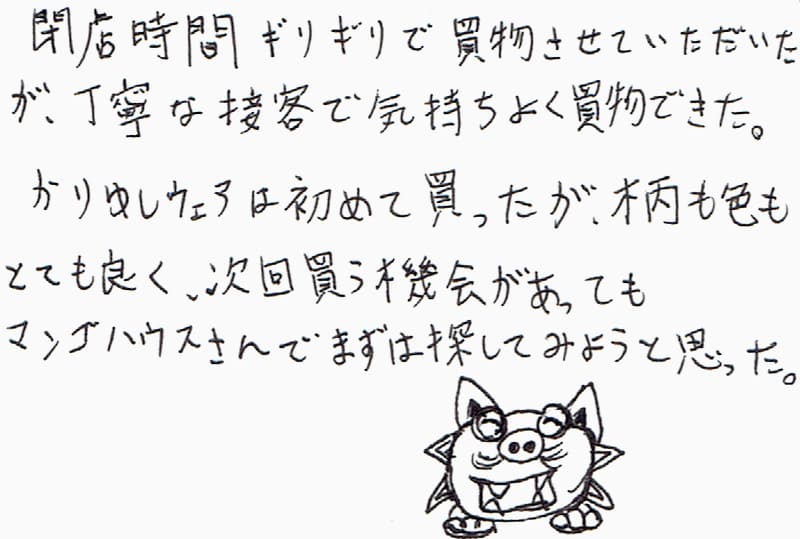 閉店時間ギリギリで買物させていただいた
が、丁寧な接客で気持ちよく買物できた。
かりゆしウェアは初めて買ったが、柄も色も
とても良く、次回買う機会があっても
マンゴハウスさんでまずは探してみようと思った。